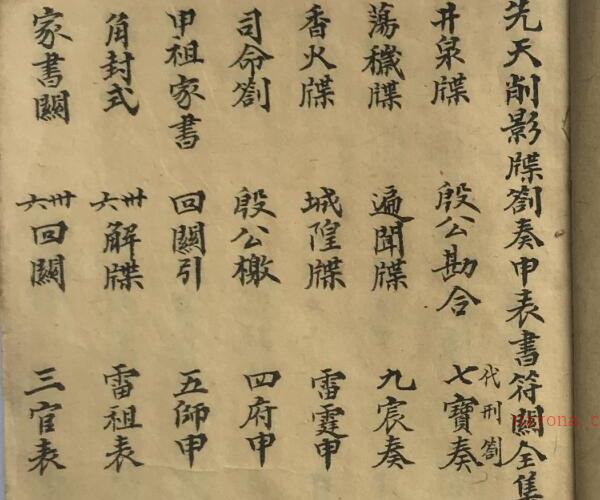 先天削影牒劄奏申表書符關全集
井泉牒 殷公勘合 七寶奏 代刑劄
蕩穢牒 遍聞牒 九宸奏
香火牒 城隍牒 雷霆申
司命劄 殷公檄 四府申
申祖家書 回關引 五師申
角封式 卅六解牒 雷祖表
家書關 卅六回關 三官表